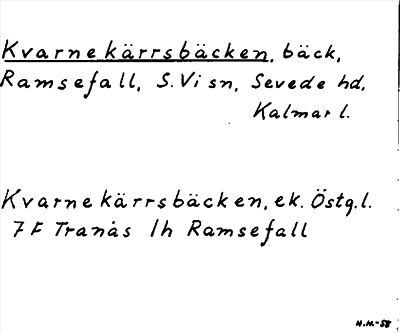 Kvarnekärrsbäcken, bäck,
Ramsefall, S.Vi sn, Sevede hd,
Kalmar l.
Kvarnekärrsbäcken, ek. Östg.l.
7 F Tranås 1h Ramsefall
H.H.-58